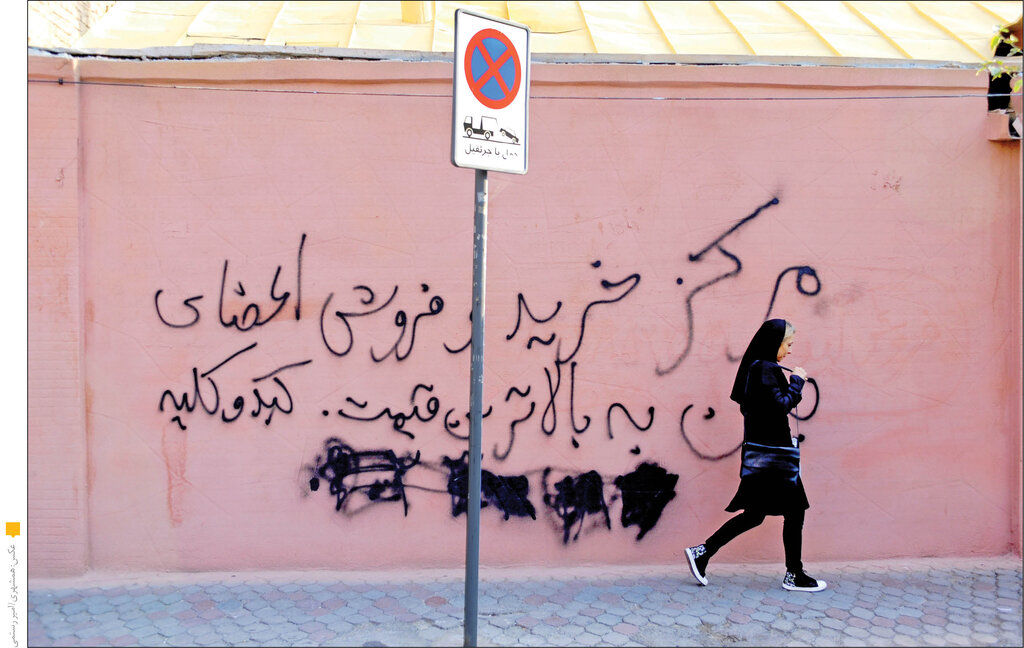 حمل با جرثقیل
مرکز خرید و فروش اعضای
به بالاترین قیمت. کبد و کلیه
عکس: همشهری/ امیر رستمی